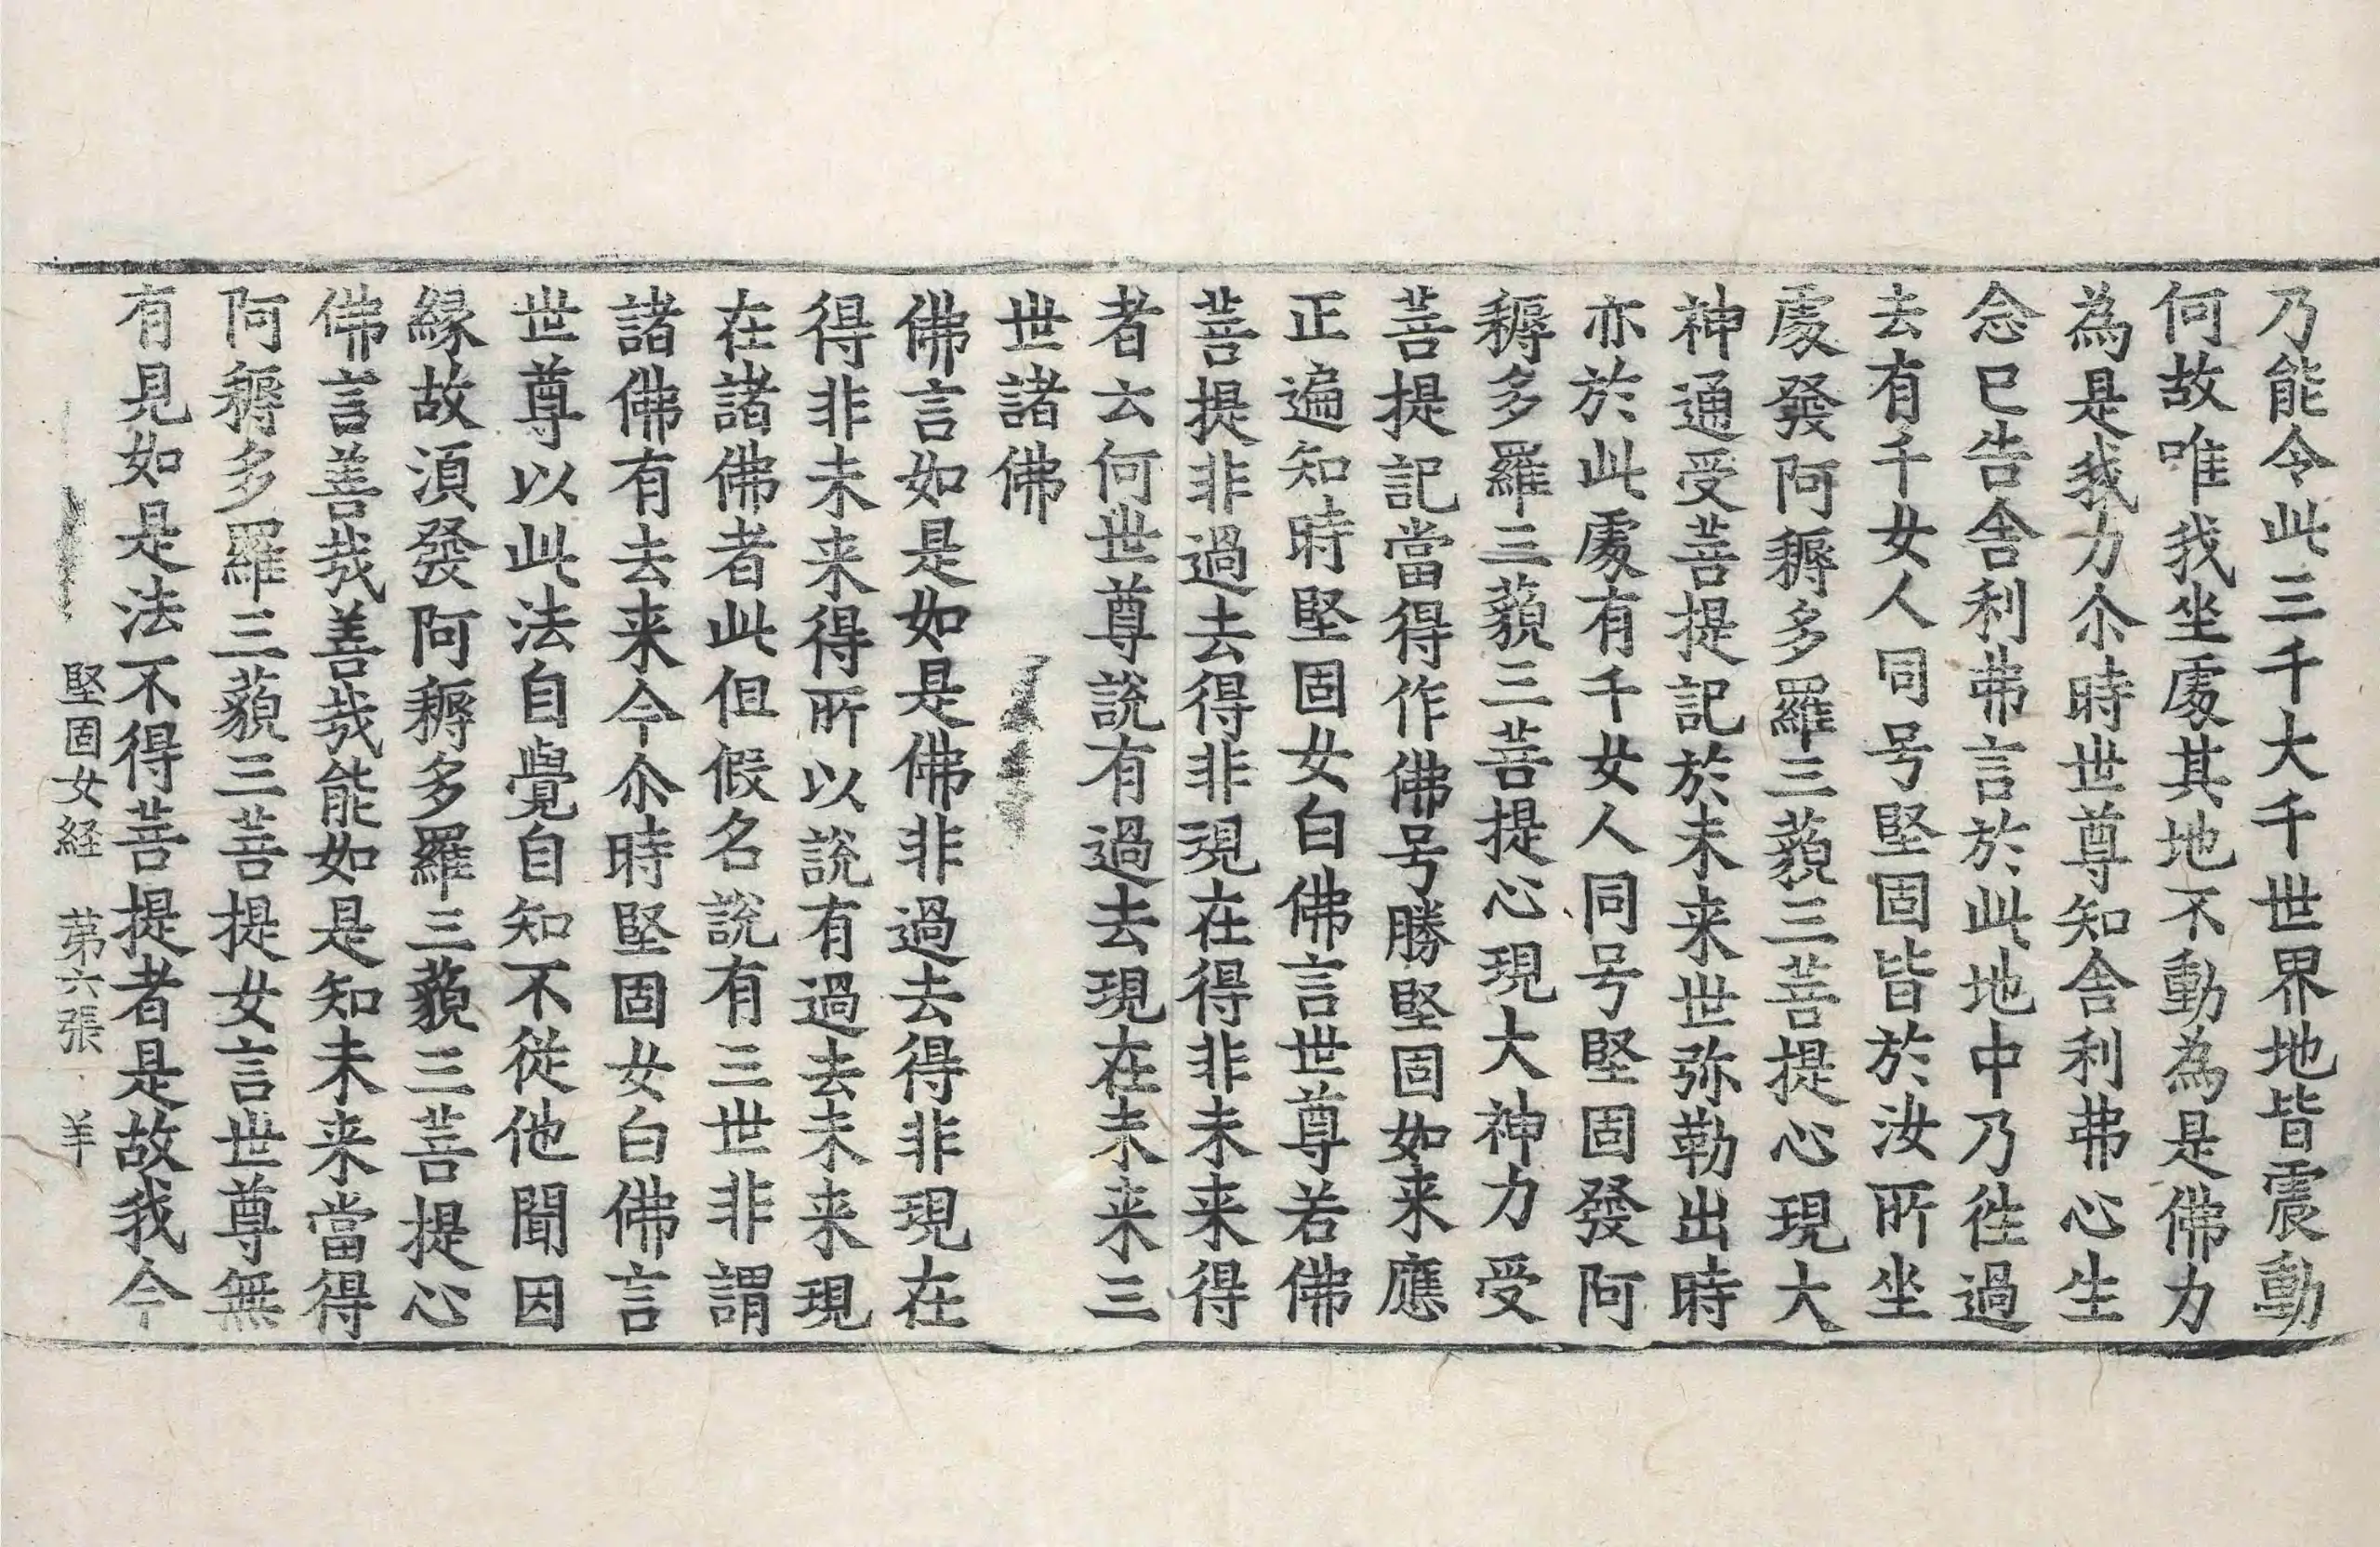 乃能令此三千大千世界地皆震動
何故唯我坐處其地不動為是佛力
為是我力尒時世尊知舍利弗心生
念已告舍利弗言於此地中乃徃過
去有千女人同号堅固皆於汝所坐
處發阿耨多羅三藐三菩提心現大
神通受菩提記於未来世弥勒出時
亦於此處有千女人同号堅固發阿
耨多羅三藐三菩提心現大神力受
菩提記當得作佛号勝堅固如来應
正遍知時堅固女白佛言世尊若佛
菩提非過去得非現在得非未来得
者云何世尊說有過去現在未来三
世諸佛
佛言如是如是佛非過去得非現在
得非未来得所以說有過去未来現
在諸佛者此但假名說有三世非謂
諸佛有去来今尒時堅固女白佛言
世尊以此法自覺自知不従他聞因
縁故湏發阿耨多羅三藐三菩提心
佛言善哉善哉能如是知未来當得
阿耨多羅三藐三菩提女言世尊無
有見如是法不得菩提者是故我今
堅固女経 苐六張 羊